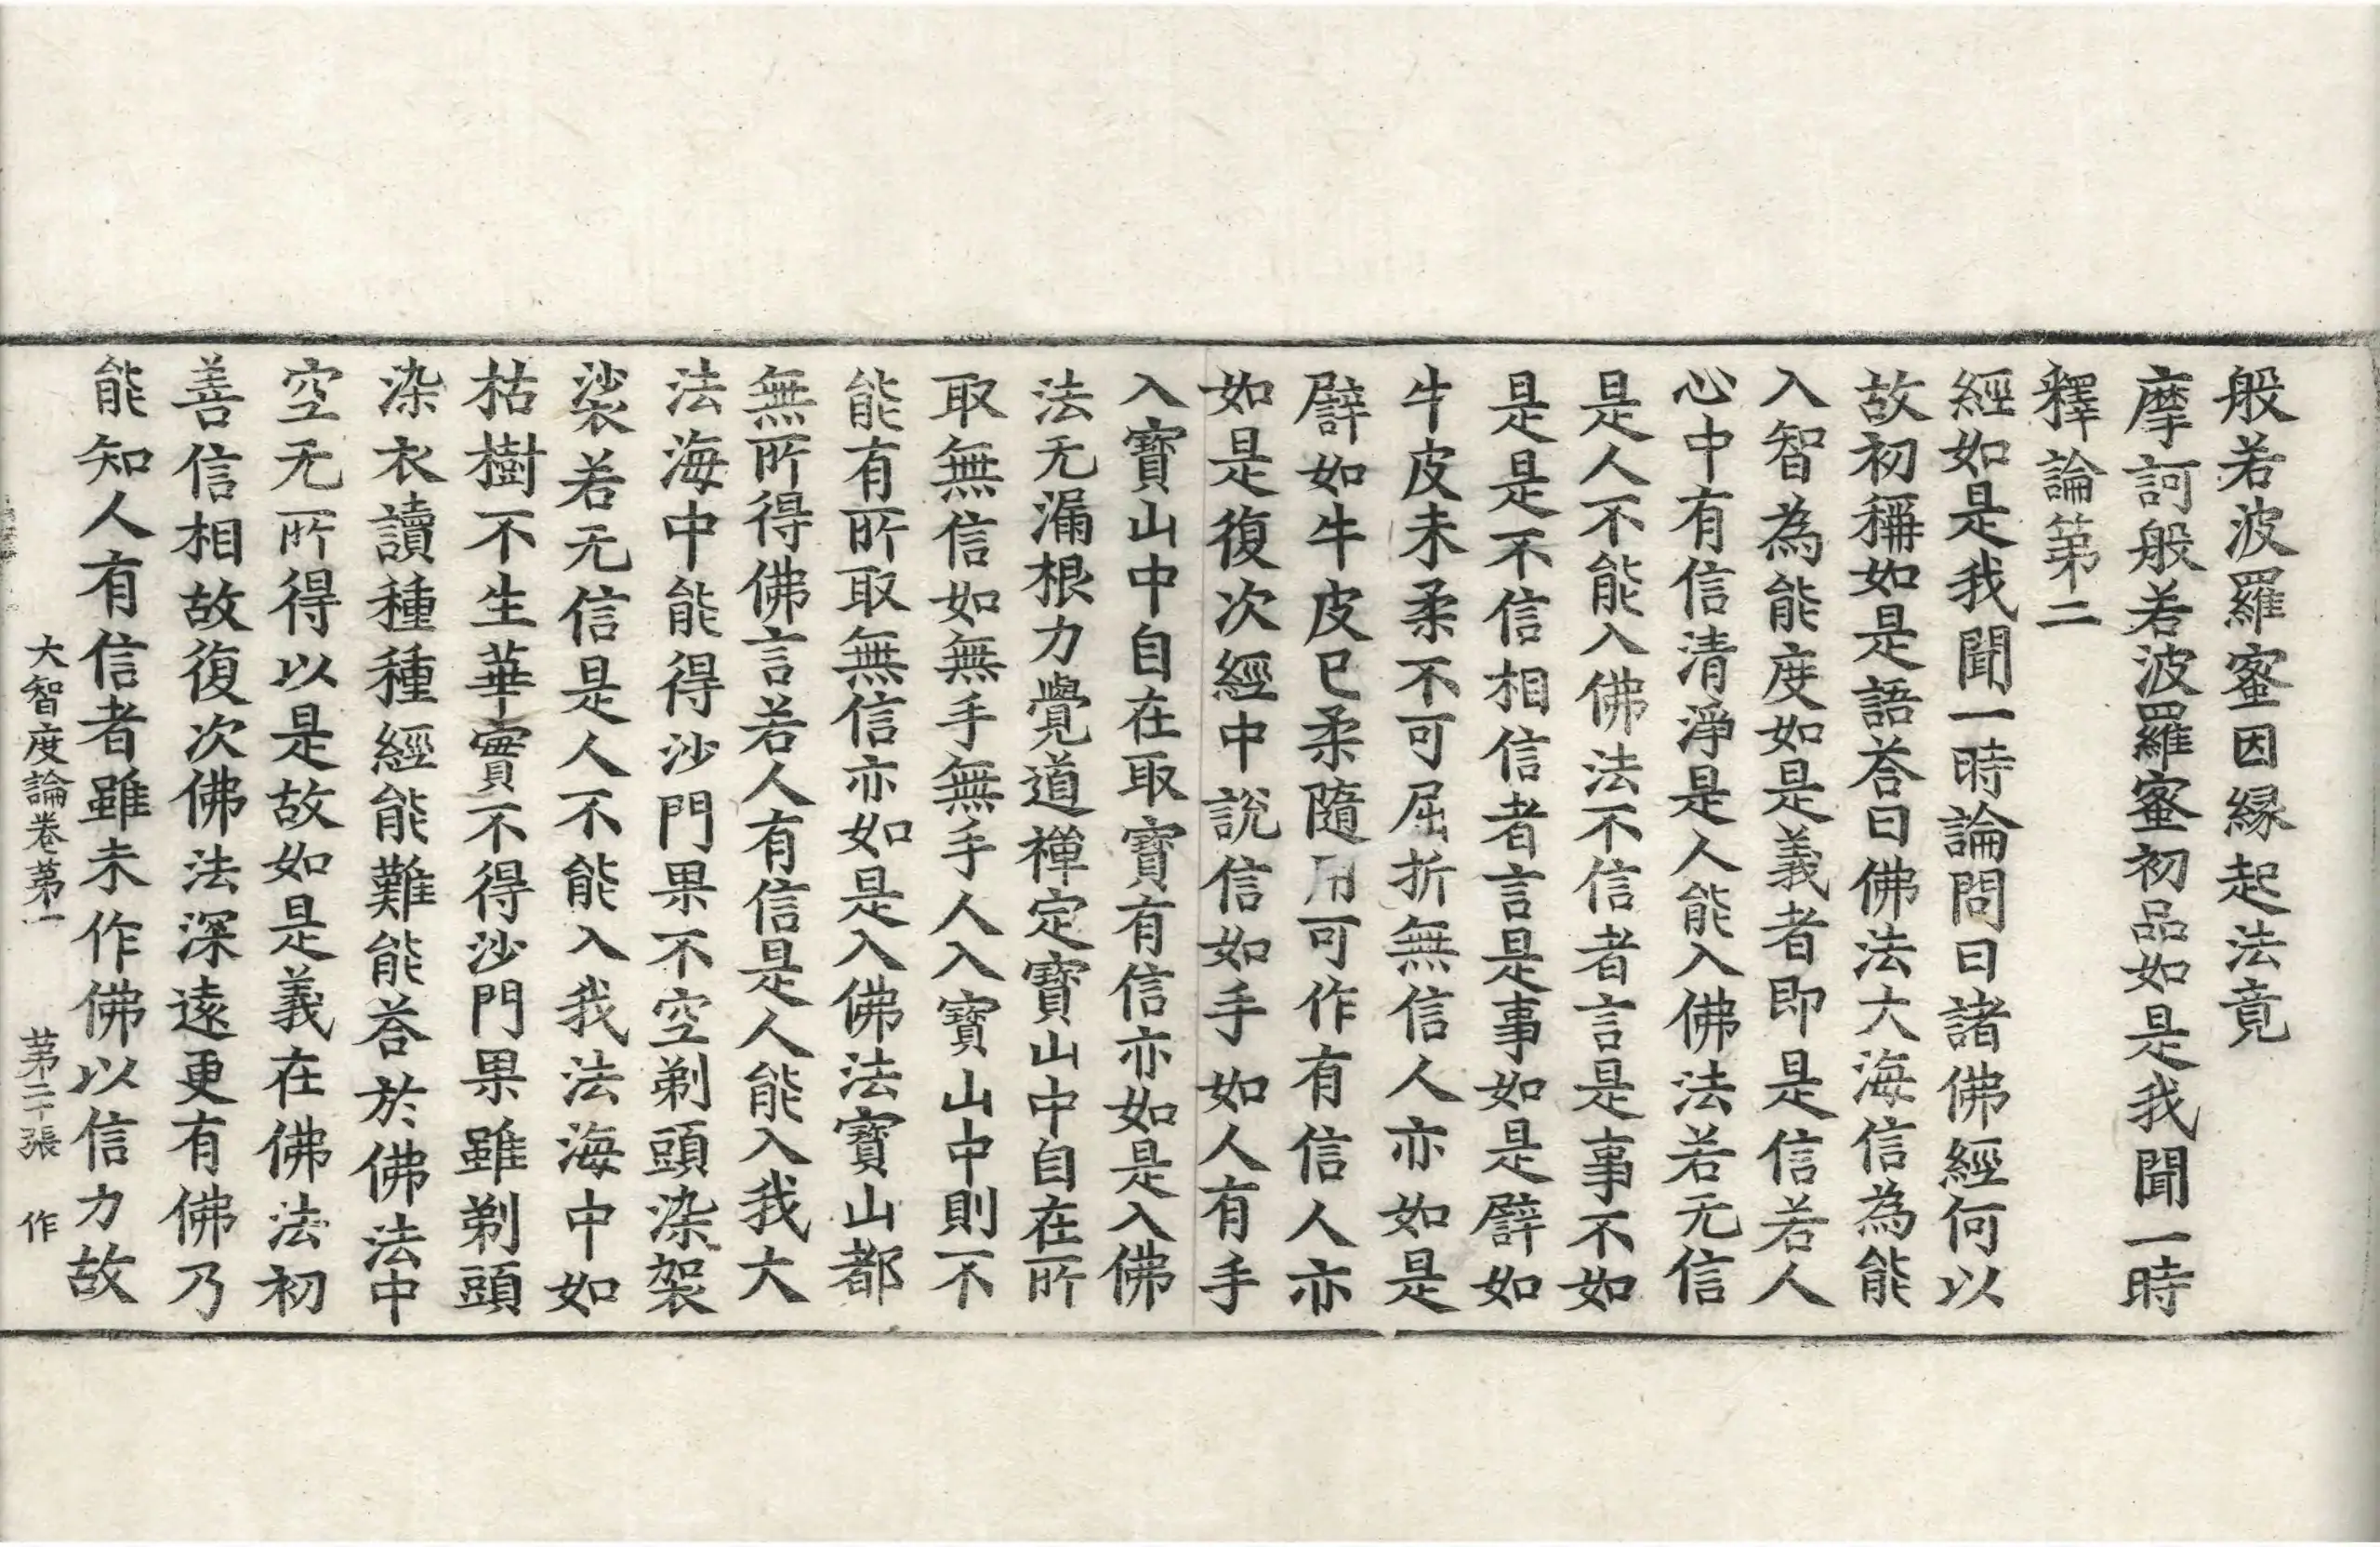 般若波羅蜜因縁起法竟
摩訶般若波羅蜜初品如是我聞一時
釋論第二
經如是我聞一時論問曰諸佛經何以
故初稱如是語荅曰佛法大海信為能
入智為能度如是義者即是信若人
心中有信清淨是人能入佛法若无信
是人不能入佛法不信者言是事不如
是是不信相信者言是事如是譬如
牛皮未柔不可屈折無信人亦如是
譬如牛皮已柔隨用可作有信人亦
如是復次經中說信如手如人有手
入寶山中自在取寶有信亦如是入佛
法无漏根力覺道禪定寶山中自在所
取無信如無手無手人入寶山中則不
能有所取無信亦如是入佛法寶山都
無所得佛言若人有信是人能入我大
法海中能得沙門果不空剃頭染袈
裟若无信是人不能入我法海中如
枯樹不生華實不得沙門果雖剃頭
染衣讀種種經能難能荅於佛法中
空无所得以是故如是義在佛法初
善信相故復次佛法深遠更有佛乃
能知人有信者雖未作佛以信力故
大智度論卷苐一 苐二十張 作